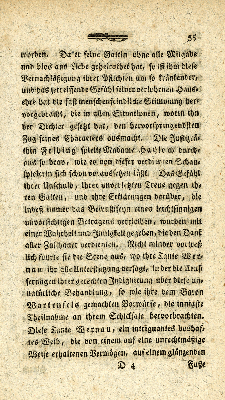 55
worden. Da er seine Gattin ohne alle Mitgabe
und blos aus Liebe geheirathet hat, so ist ihm diese
Vernachläßigung ihrer Pflichten um so kränkender,
und das zerreissende Gefühl seiner verlohrnen Haus-
ehre hat die fast menschenfeindliche Stimmung her-
vorgebracht, die in allen Situationen, worin ihn
der Dichter gesetzt hat, den hervorspringendsten
Zug seines Characters ausmacht. Die Justizrä-
thin Felbing spielte Madame durch-
aus so brav, wie es von dieser verdienten Schau-
spielerin sich schon voraussehen läßt. Das Gefühl
ihrer Unschuld, ihrer unverletzten Treue gegen ih-
ren Gatten, und ihre Erklärungen darüber, die
unter immer das Bekenntniß eines leichtsinnigen
unvorsichtigen Betragens verriethen, wurden mit
einer Wahrheit und Innigkeit gegeben, die den Dank
aller Zuschauer verdienten. Nicht minder vortreff-
lich spielte sie die Scene aus, wo ihre Tante Wer-
nau, ihr alle Unterstützung versagt, in der die Aeus-
serungen ihrer gereizten Indignation über diese un-
natürliche Behandlung, so wie ihre dem Baron
Wartensfels gemachten Vorwürfe, die innigste
Theilnahme an ihrem Schicksale hervorbrachten.
Diese Tante Wernau, ein intriguantes boshaf-
tes Weib, die von einem auf eine unrechtmäßige
Weise erhaltenen Vermögen, auf einem glänzenden
D 4 Fuße